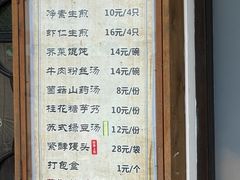 净素生煎 10元/4只
虾仁生煎 16元/4只
荠菜馄饨 14元/碗
牛肉粉丝汤 14元/碗
菌菇山药汤 8元/份
桂花糖芋艿 10元/份
苏式绿豆汤 12元/份
紧酵馒头 28元/袋
打包盒 1元/个